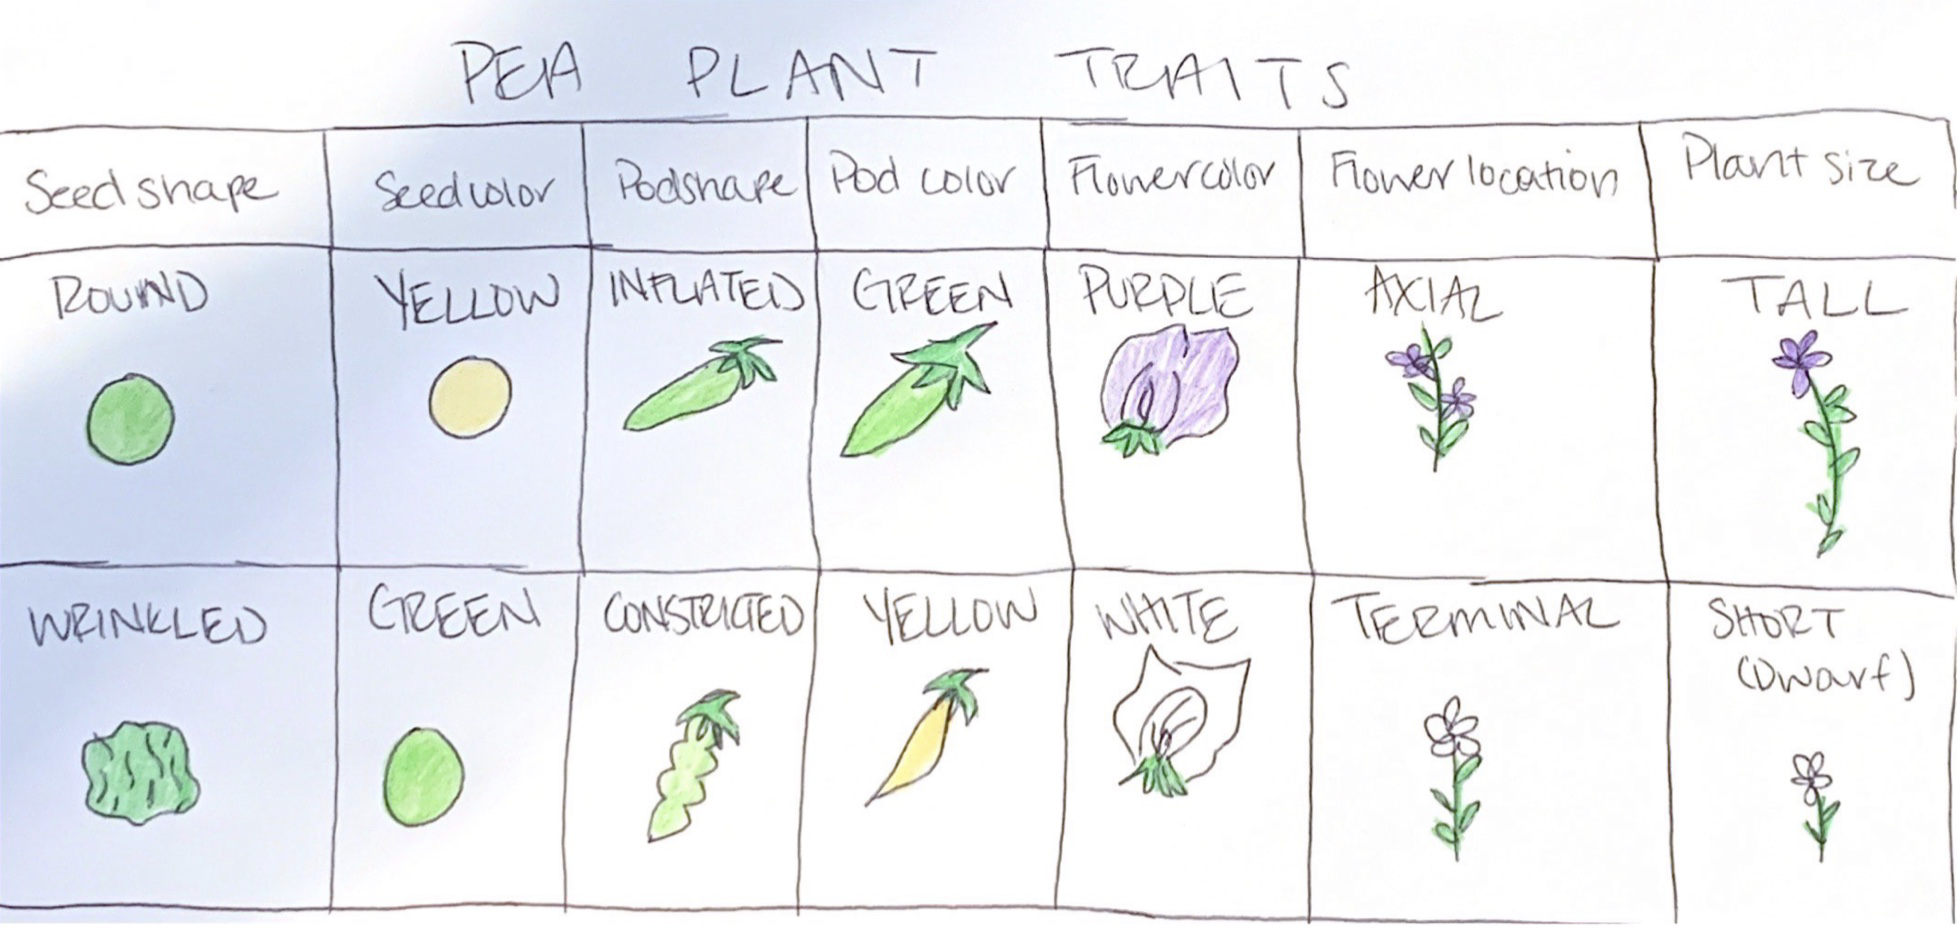 PEA PLANT TRAITS
Seed shape
Seed color
Pod shape
Pod color
Flower color
Flower location
Plant size
ROUND
YELLOW
INFLATED
GREEN
PURPLE
AXIAL
TALL
WRINKLED
GREEN
CONSTRICTED
YELLOW
WHITE
TERMINAL
SHORT
(Dwarf)